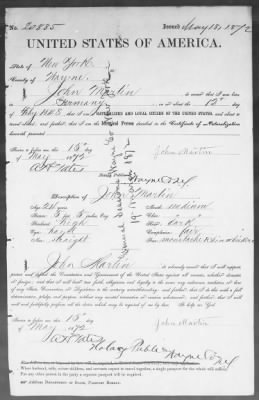 No. 20885 Issued May 18, 1872
UNITED STATES OF AMERICA.
State of New York
County of Wayne
I, John Martin do swear that I was born
in Germany on or about the 12th day
of July 1848 that I am a NATURALIZED AND LOYAL CITIZEN OF THE UNITED STATES, and about to
travel abroad; and further, that I am the Identical Person described in the Certificate of Naturalization
herewith presented.
Sworn to before me this 15th day
of May 1872 John Martin
Notary Public
Wayne Co N.Y.
Description of John Martin
Age: 24 years Mouth: medium
Stature: 5 feet 5 inches
Forehead: high Hair: dark
Eyes: hazel Complexion: fair
Nose: straight Face:
I, John Martin do solemnly swear that I will support
protect and defend the Constitution and Government of the United States against all enemies, whether domestic
or foreign; and that I will bear true faith, allegiance and loyalty to the same, any ordinance, resolution or law
of any State, Convention or Legislature to the contrary notwithstanding; and further, that I do this with a full
determination, pledge and purpose, without any mental reservation or evasion whatsoever; and further, that I will
well and faithfully perform all the duties which may be required of me by law. So help me God.
Sworn to before me this 15th day
of May 1872 John Martin
Notary Public Wayne Co N.Y.
Address DEPARTMENT OF STATE, PASSPORT BUREAU.